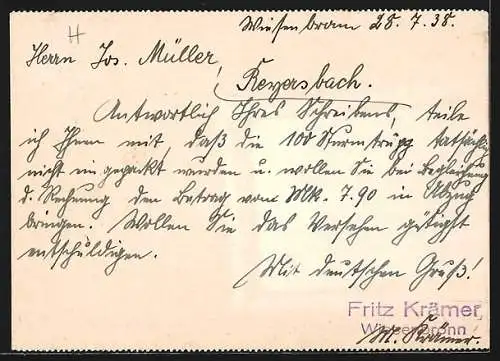 Wiesenbronn 28.7.38.
H
Herrn Jos. Müller,
Reyersbach.
Antwortlich Ihres Schreibens, teile
ich Ihnen mit, daß die 100 tatsächlich
nicht eingepackt wurden u. wollen Sie bei Begleichung
d. Rechnung den Betrag von Mk. 7.90 in Abzug
bringen. Wollen Sie das Versehen gütigst
entschuldigen.
Mit deutschen Gruß!
Fritz Krämer
Wiesenbronn
M. Krämer.